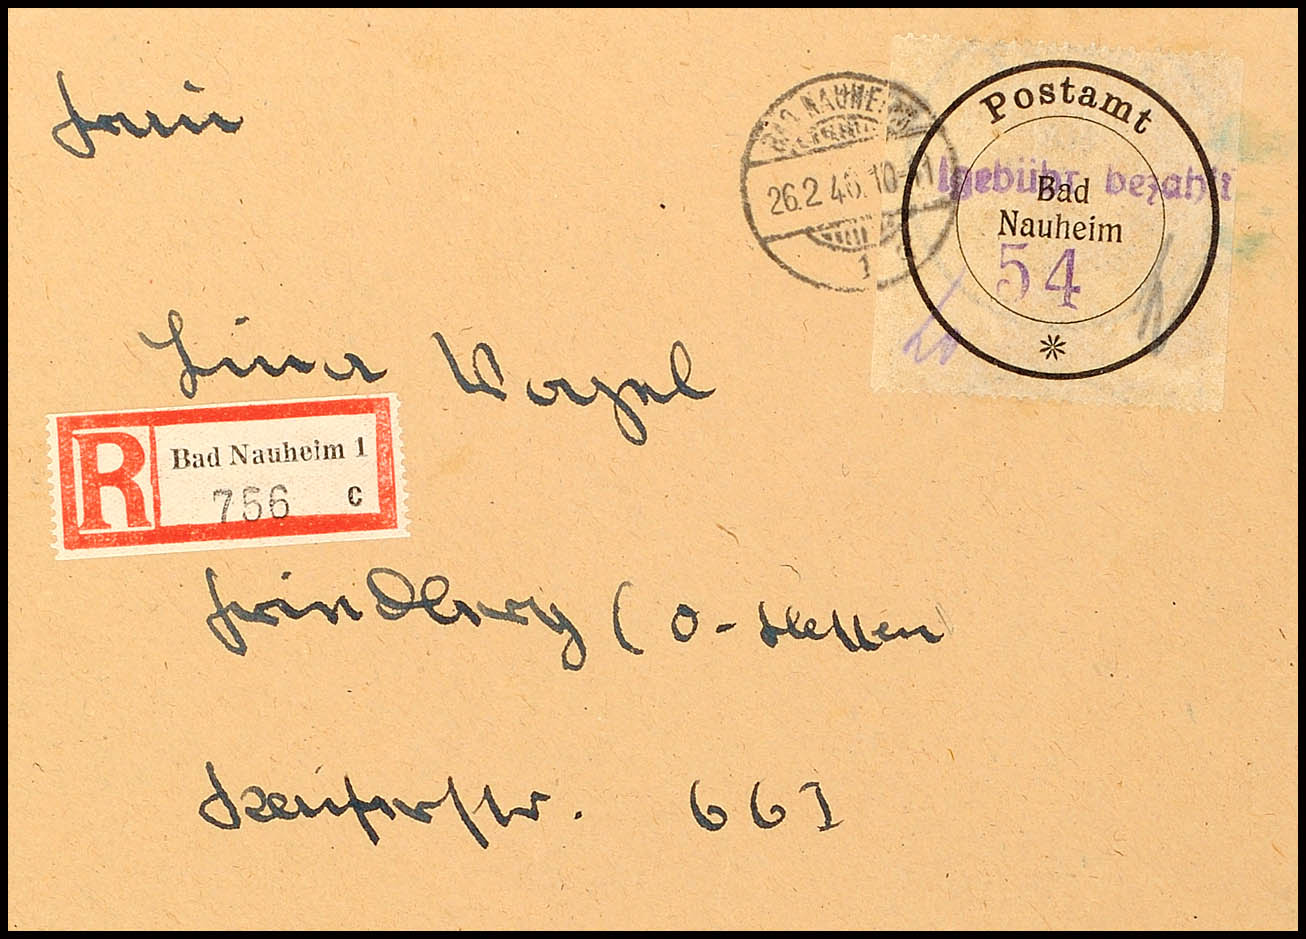 Frau
BAD NAUHEIM
26.2.46.10-11
1 c
Postamt
gebühr bezahlt
Bad
Nauheim
54
Lina Vogel
R Bad Nauheim 1
756 c
Friedberg (O-Hessen
66I